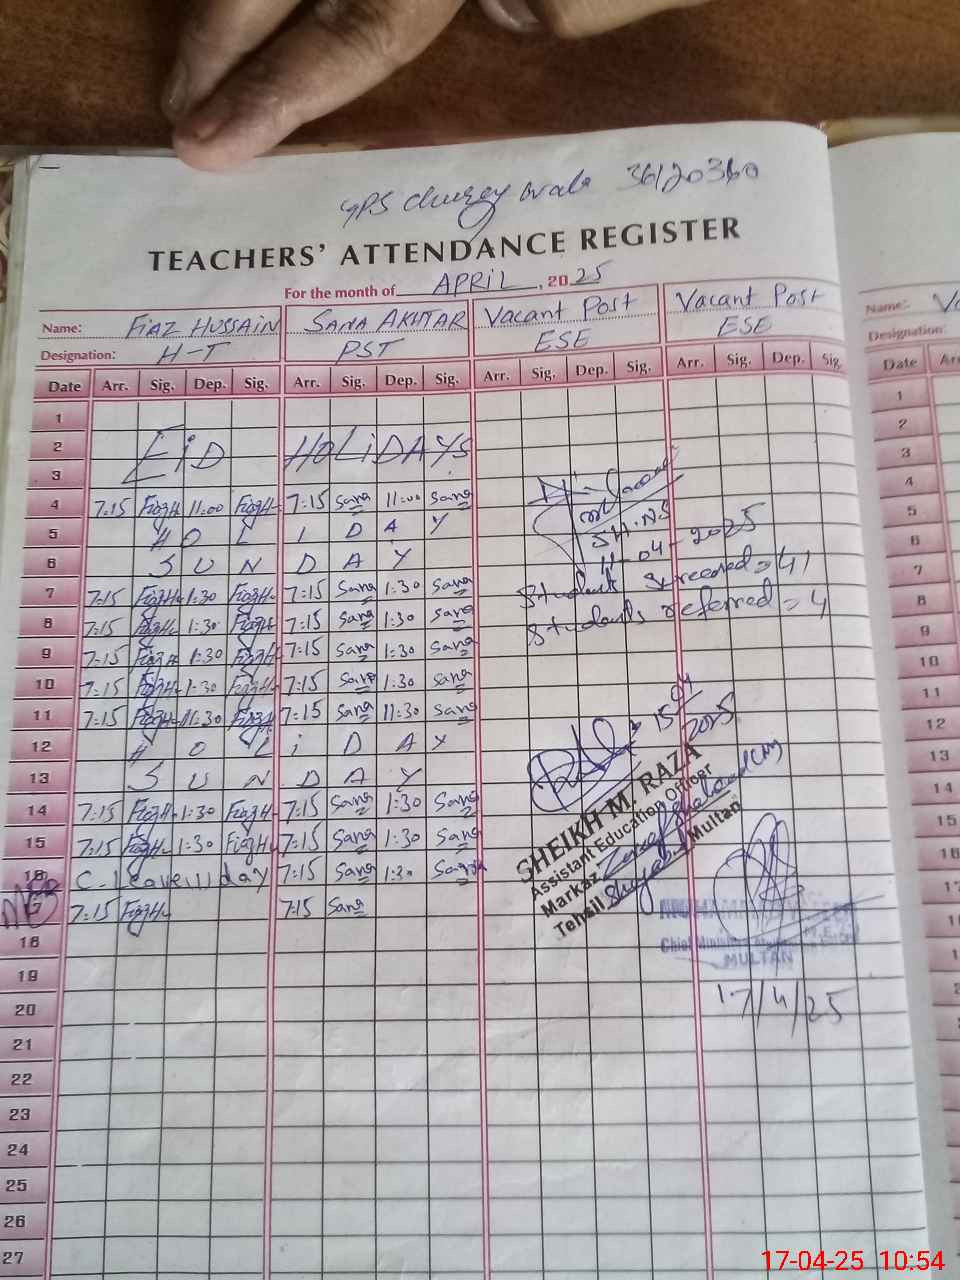 GPS 36120360
TEACHERS' ATTENDANCE REGISTER
For the month of APRIL, 2025
Name: FIAZ HUSSAIN SANA AKHTAR Vacant Post Vacant Post Name:
Designation: H-T PST ESE ESE Designation:
Date Arr. Sig. Dep. Sig. Arr. Sig. Dep. Sig. Arr. Sig. Dep. Sig. Arr. Sig. Dep. Sig. Date
1 1
2 EID HOLIDAYS 2
3 3
4 7:15 FiazH 11:00 FiazH 7:15 Sana 11:00 Sana 4
5 HOLIDAY 5
6 SUNDAY 11-04-2025 6
7 7:15 FiazH 1:30 FiazH 7:15 Sana 1:30 Sana Student Screened = 41 7
8 7:15 FiazH 1:30 FiazH 7:15 Sana 1:30 Sana Students referred = 4 8
9 7:15 FiazH 1:30 FiazH 7:15 Sana 1:30 Sana 9
10 7:15 FiazH 1:30 FiazH 7:15 Sana 1:30 Sana 10
11 7:15 FiazH 11:30 FiazH 7:15 Sana 11:30 Sana 15-04 11
12 HOLiDAY 2025 12
13 SUNDAY 13
14 7:15 FiazH 1:30 FiazH 7:15 Sana 1:30 Sana 14
15 7:15 FiazH 1:30 FiazH 7:15 Sana 1:30 Sana 15
16 C-Leave 1 day 7:15 Sana 1:30 Sana 16
17 7:15 FiazH 7:15 Sana 17
SHEIKH M. RAZA
Assistant Education Officer
Markaz
Tehsil Multan
Chief Minister
MULTAN
17/4/25
18
19
20
21
22
23
24
25
26
27
17-04-25 10:54